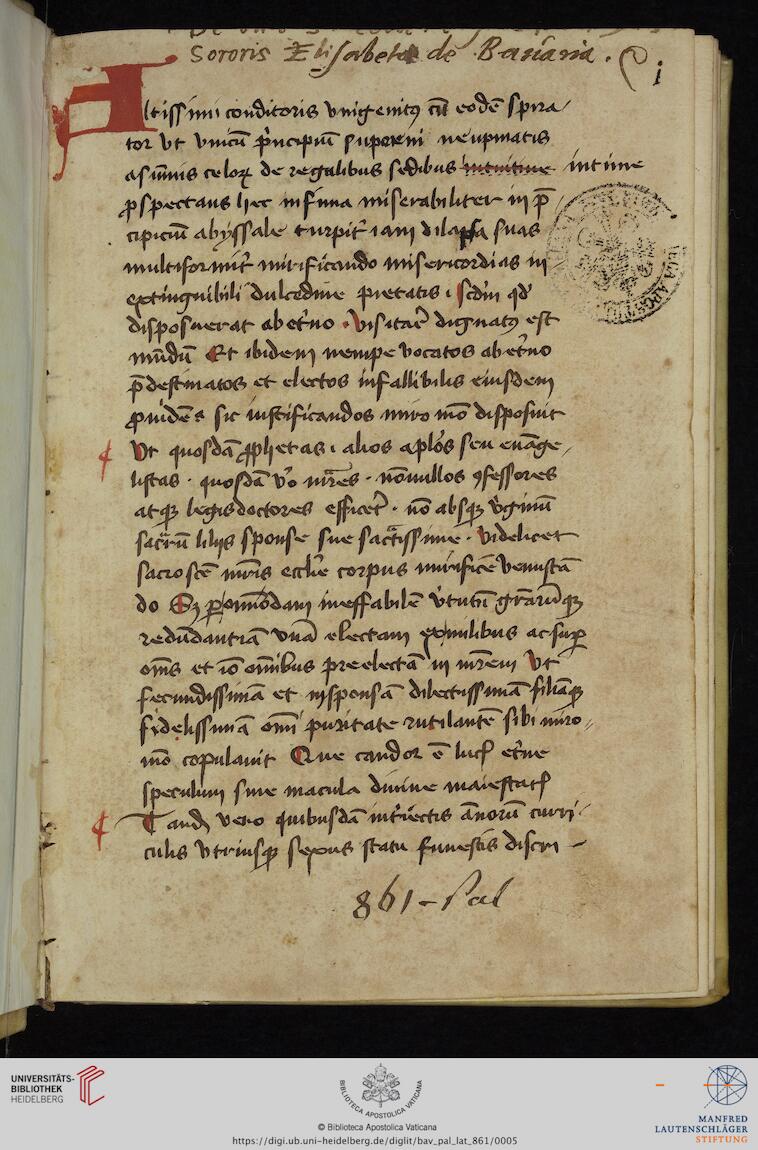 Sororis Elisabete de Bauaria . i
Altissimi conditoris vnigenit9 cū eodē spira
tor vt vnicū p̄ncipiū supremi neupmatis
a sūmis celoꝝ de regalibus sedibus intuitiue intime
ꝓspectans hec infima miserabiliter in p̄
cipiciū abyssale turpit͛ iam dilapsa suas
multiformit͛ mirificando misericordias in
extinguibili dulcedine pietatis · scd̄m qd̛
disposuerat ab et͛no · visitar̛ dignat9 est
mūdū Et ibidem nempe vocatos ab et͛no
p̄destinatos et electos infallibilis eiusdem
ꝓuidēs sic iustificandos miro mō disposuit
Vt quosdā ꝓphetas · alios apl̄os seu euāge
listas · quosdā v̛o mr̄es · nōnullos ꝯfessores
atqꝫ legisdoctores efficer̛ · nō absqꝫ v̛ginū
sacraꝝ liliis sponse sue sāctissime · videlicet
sacroscē mr̄is eccl̄ie corpus mirificē venustā
do Sꝫ ꝑ om̄modam ineffabilē v̛tutū gr̄arūqꝫ
redūdantiā vnā electam ex milibus ac suꝑ
om̄s et iō om̄ibus preelectā in mr̄em Vt
fecundissimā et in sponsā dilectissimā filiāqꝫ
fidelissimā om̄i puritate rutilantē sibi miro
mō copulauit Que candor ē lucꝭ et͛ne
speculum sine macula diuine maiestatꝭ
Tandē vero quibusdā int͛iectis ānorū curri
culis vtriusqꝫ sexus statu funestis discri
861 - Pal
UNIVERSITÄTS-
BIBLIOTHEK
HEIDELBERG
BIBLIOTECA APOSTOLICA VATICANA
© Biblioteca Apostolica Vaticana
https://digi.ub.uni-heidelberg.de/diglit/bav_pal_lat_861/0005
MANFRED
LAUTENSCHLÄGER
STIFTUNG